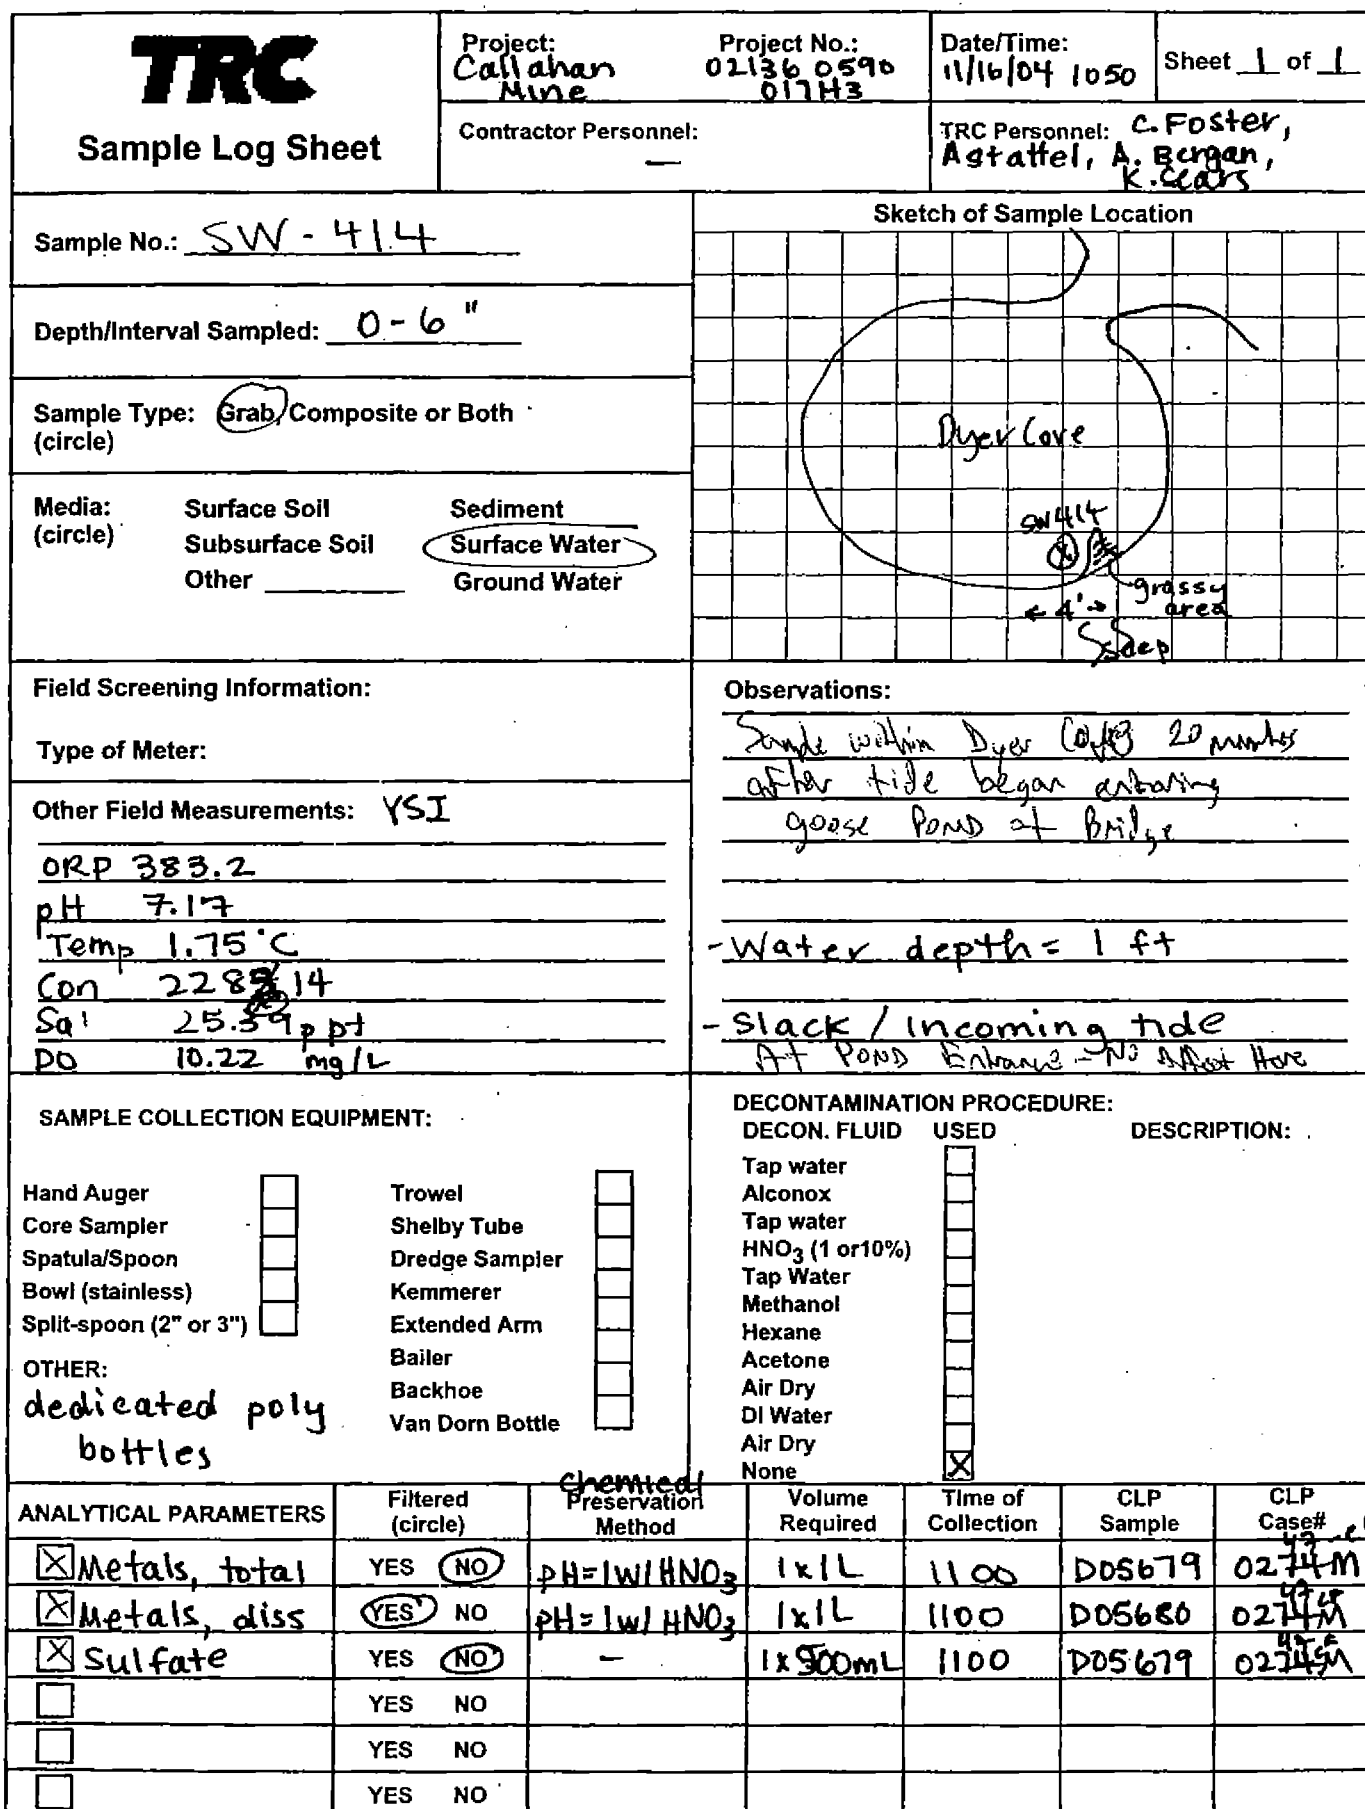 TRC
Sample Log Sheet
Project: Callahan Mine
Project No.: 02136 0590 017H3
Date/Time: 11/16/04 1050
Sheet 1 of 1
Contractor Personnel: —
TRC Personnel: C. Foster,
A. Bergan,
K. Sears
Sample No.: SW-414
Depth/Interval Sampled: 0-6"
Sample Type: Grab, Composite or Both
(circle)
Media:
(circle)
Surface Soil
Sediment
Subsurface Soil
Surface Water
Other
Ground Water
Sketch of Sample Location
Dyer Cove
SW414
X
grassy
area
← 4' →
Field Screening Information:
Type of Meter:
Other Field Measurements: YSI
ORP 383.2
pH 7.17
Temp 1.75°C
Con 14
Sal ppt
DO 10.22 mg/L
Observations:
Sample within Dyer 20 minutes
after tide began entering
goose Pond at Bridge
- Water depth = 1 ft
- Slack / Incoming tide
At Pond Entrance - No Affect Here
SAMPLE COLLECTION EQUIPMENT:
Hand Auger
Core Sampler
Spatula/Spoon
Bowl (stainless)
Split-spoon (2" or 3")
OTHER:
dedicated poly
bottles
Trowel
Shelby Tube
Dredge Sampler
Kemmerer
Extended Arm
Bailer
Backhoe
Van Dorn Bottle
DECONTAMINATION PROCEDURE:
DECON. FLUID USED DESCRIPTION:
Tap water
Alconox
Tap water
HNO3 (1 or10%)
Tap Water
Methanol
Hexane
Acetone
Air Dry
DI Water
Air Dry
None X
ANALYTICAL PARAMETERS
Filtered
(circle)
Chemical
Preservation
Method
Volume
Required
Time of
Collection
CLP
Sample
CLP
Case#
X Metals, total YES NO pH=1 W/ HNO3 1x1L 1100 D05679
X Metals, diss YES NO pH=1 W/ HNO3 1x1L 1100 D05680
X Sulfate YES NO — 1x500mL 1100 D05679
YES NO
YES NO
YES NO